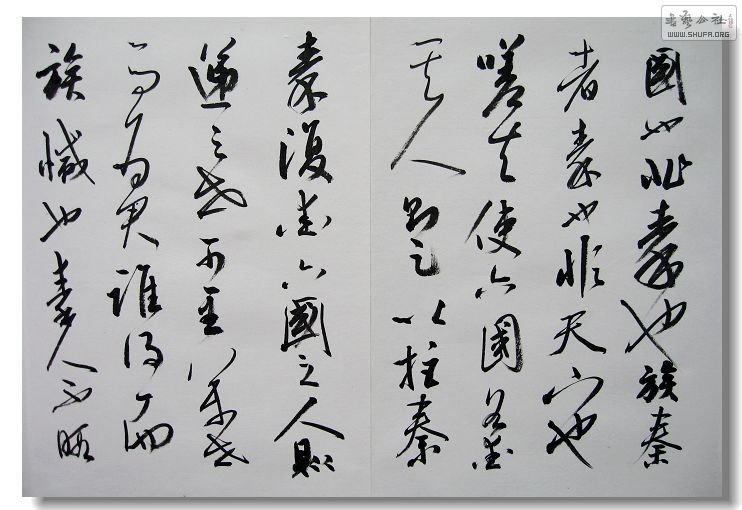 書藝公社
WWW.SHUFA.ORG
國也非秦也族秦
者秦也非天下也
嗟夫使六國各愛
其人則足以拒秦
秦復愛六國之人則
遞三世可至萬世
而為君誰得而
族滅也秦人不暇